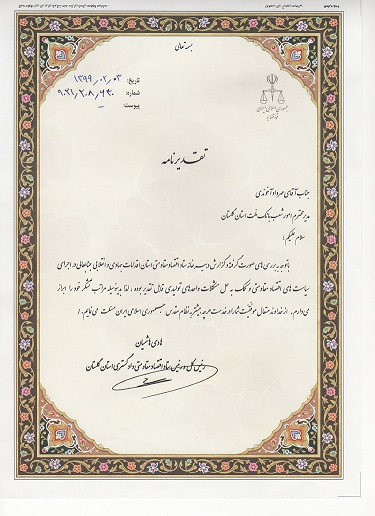 بسمه تعالی
تاریخ: ۱۳۹۹/۰۲/۰۳
شماره: ۹۰۲۱/۲۰۸/۶۳۰
پیوست: –
جمهوری اسلامی ایران
قوه قضاییه
تقدیرنامه
جناب آقای مهرداد آخوندی
مدیر محترم امور شعب بانک ملت استان گلستان
سلام علیکم؛
با توجه به بررسی های صورت گرفته و گزارش دبیرخانه ستاد اقتصاد مقاومتی استان اقدامات جهادی و انقلابی جنابعالی در اجرای
سیاست های اقتصاد مقاومتی و کمک به حل مشکلات واحدهای تولیدی قابل تقدیر بوده، لذا بدینوسیله مراتب تشکر خود را ابراز
می دارم. از خداوند متعال موفقیت شما را در خدمت هرچه بیشتر به نظام مقدس جمهوری اسلامی ایران مسئلت می نمایم./
هادی هاشمیان
رئیس کل و رئیس ستاد اقتصاد مقاومتی دادگستری استان گلستان